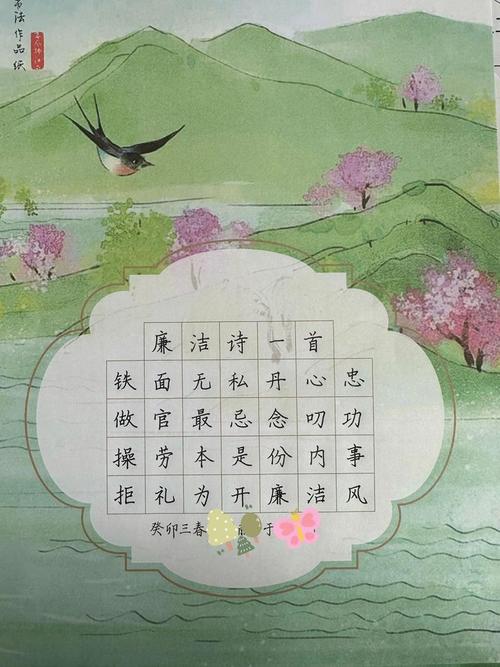 书法作品纸
廉洁诗一首
铁面无私丹心忠
做官最忌念叨功
操劳本是份内事
拒礼为开廉洁风
癸卯三春
于